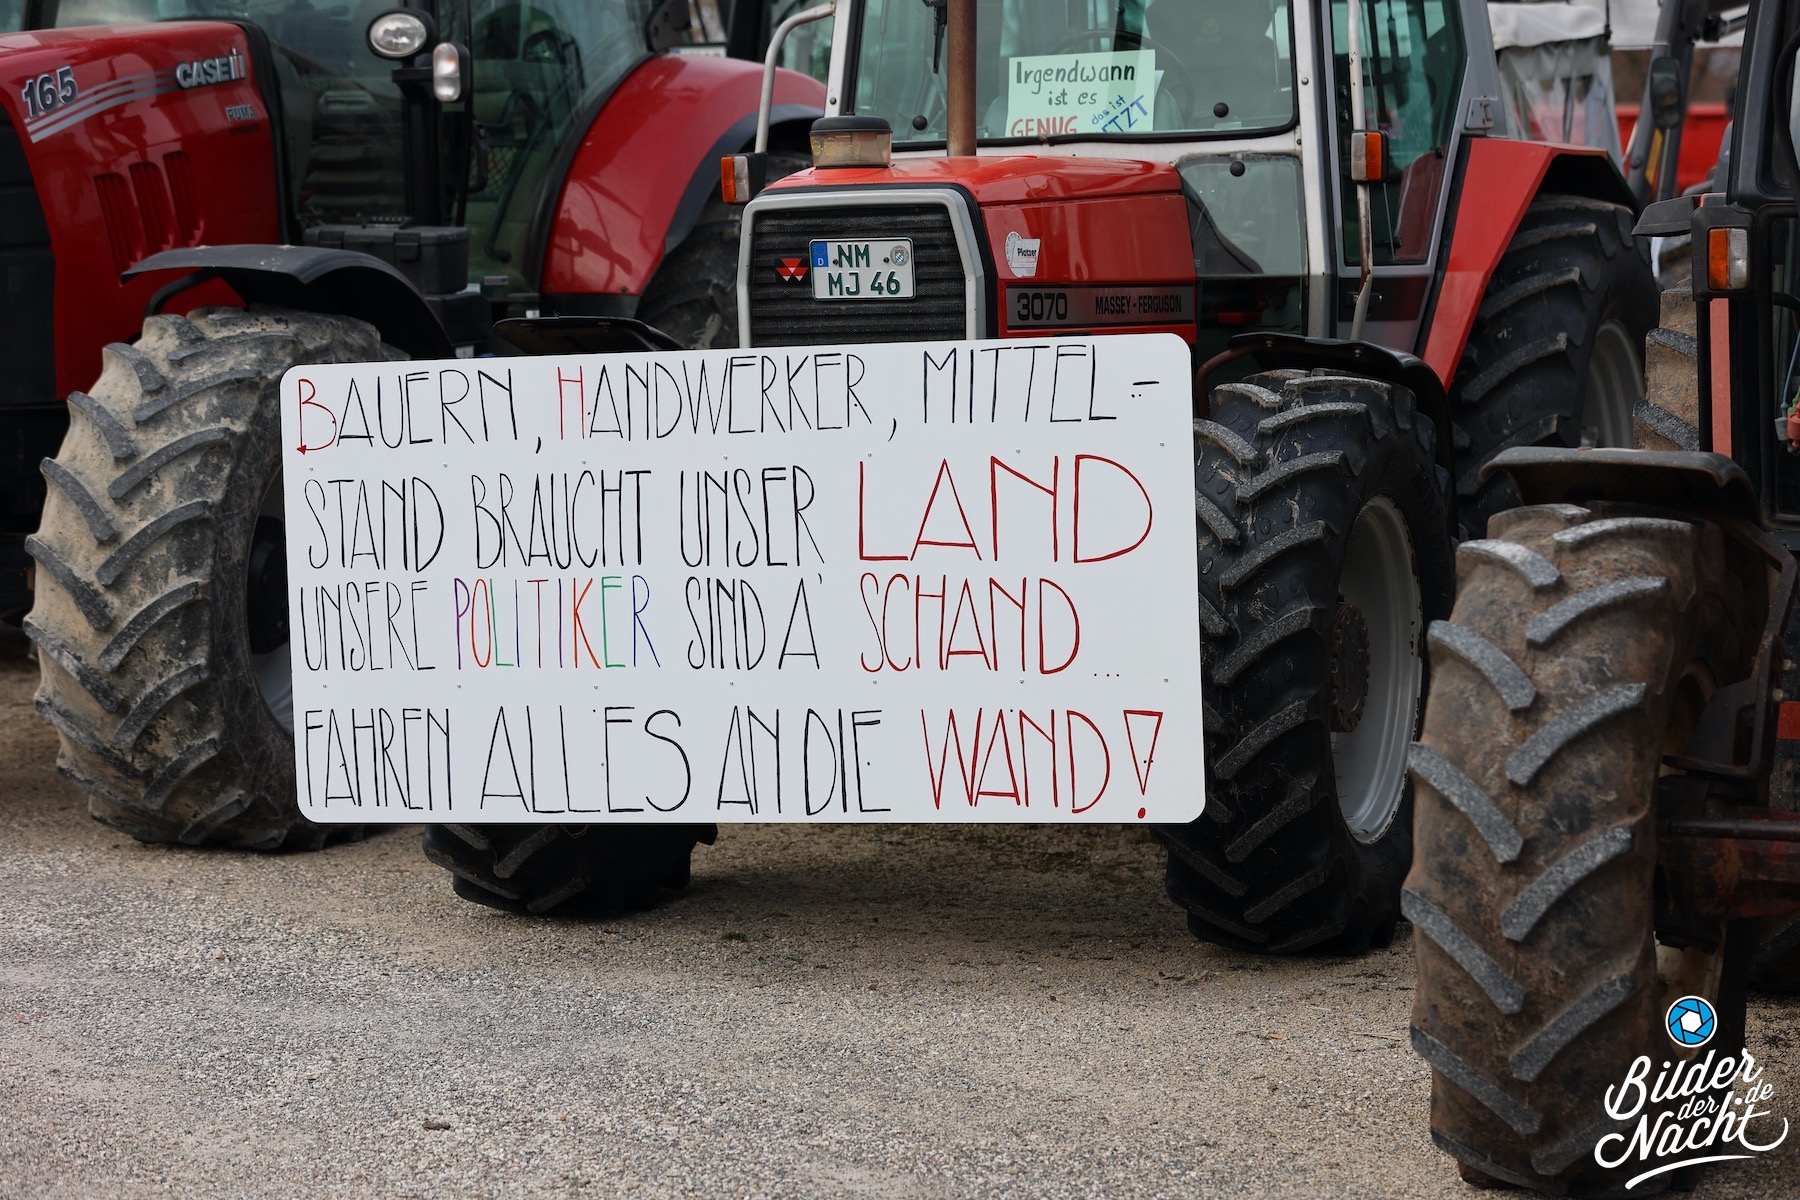 165
CASE III
PUMA
Irgendwann
ist es
GENUG
das ist
JETZT
NM
MJ 46
D
Platzer
3070 MASSEY-FERGUSON
BAUERN, HANDWERKER, MITTEL-
STAND BRAUCHT UNSER LAND
UNSERE POLITIKER SIND A' SCHAND...
FAHREN ALLES AN DIE WAND!
Bilder
der
Nacht.de